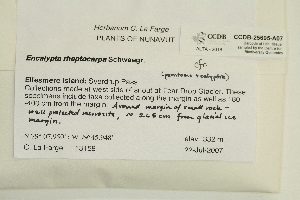 Herbarium C. La Farge
PLANTS OF NUNAVUT
CCDB
CCDB-25695-A07
ALTA
Encalypta rhaptocarpa Schwaegr.
cfr.
Ellesmere Island: Sverdrup Pass
Collections made at west side of snout of Tear Drop Glacier. These
specimens include taxa collected along the margin as well as 160
-400 cm from the margin. Around margin of small rock -
well protected microsite, 265 cm from glacial ice
margin.
elev. 332 m
C. La Farge 13158
22-Jul-2007